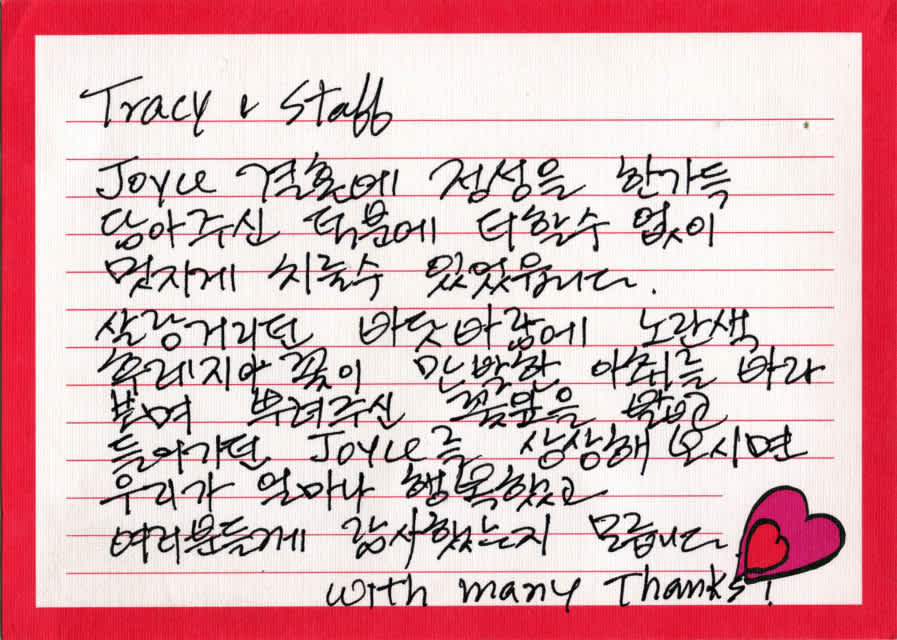 Tracy & Staff
Joyce 결혼에 정성을 한가득
담아주신 덕분에 더할수 없이
멋지게 치를수 있었읍니다.
살랑거리던 바닷바람에 노란색
후레지아 꽃이 만발한 아취를 바라
보며 뿌려주신 꽃잎을 밟고
들어가던 Joyce를 상상해 보시면
우리가 얼마나 행복했었고
여러분들께 감사했는지 모릅니다.
with many Thanks!